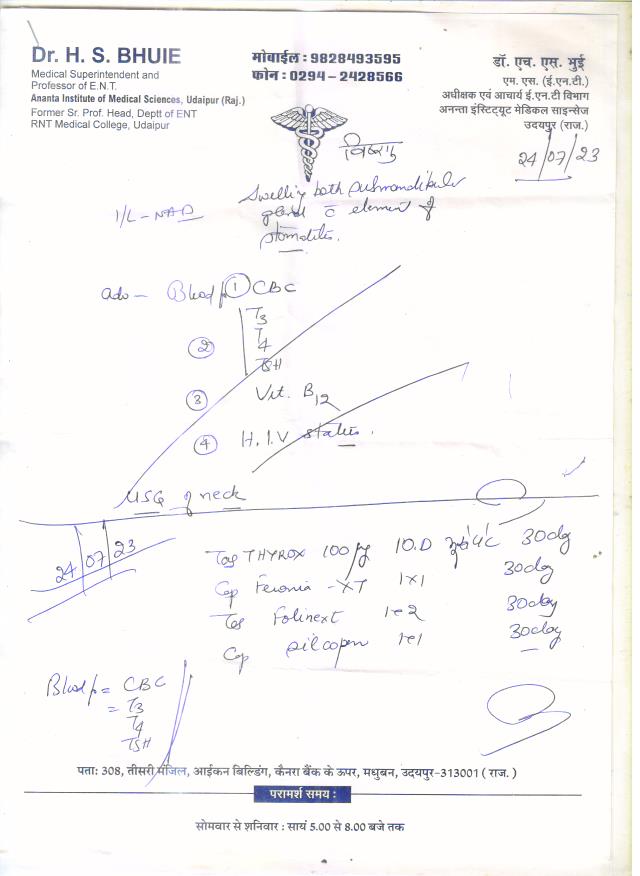 Dr. H. S. BHUIE
Medical Superintendent and
Professor of E.N.T.
Ananta Institute of Medical Sciences, Udaipur (Raj.)
Former Sr. Prof. Head, Deptt of ENT
RNT Medical College, Udaipur
मोबाईल : 9828493595
फोन : 0294 - 2428566
डॉ. एच. एस. भुई
एम. एस. (ई.एन.टी.)
अधीक्षक एवं आचार्य ई.एन.टी विभाग
अनन्ता इंस्टिट्यूट मेडिकल साइन्सेज
उदयपुर (राज.)
24/07/23
Swelling both submandibular
gland c̄ element of
stomatitis.
I/L - NAD
Adv - Blood f ① CBC
② T3
T4
TSH
③ Vit. B12
④ H.I.V status.
USG of neck
24/07/23
Tab THYROX 100 µg 1O.D 30day
Cap Feronia -XT 1x1 30day
Tab Folinext 30day
Cap 30day
Blood f = CBC
= T3
T4
TSH
पता: 308, तीसरी मंजिल, आईकन बिल्डिंग, कैनरा बैंक के ऊपर, मधुबन, उदयपुर-313001 ( राज. )
परामर्श समय :
सोमवार से शनिवार : सायं 5.00 से 8.00 बजे तक